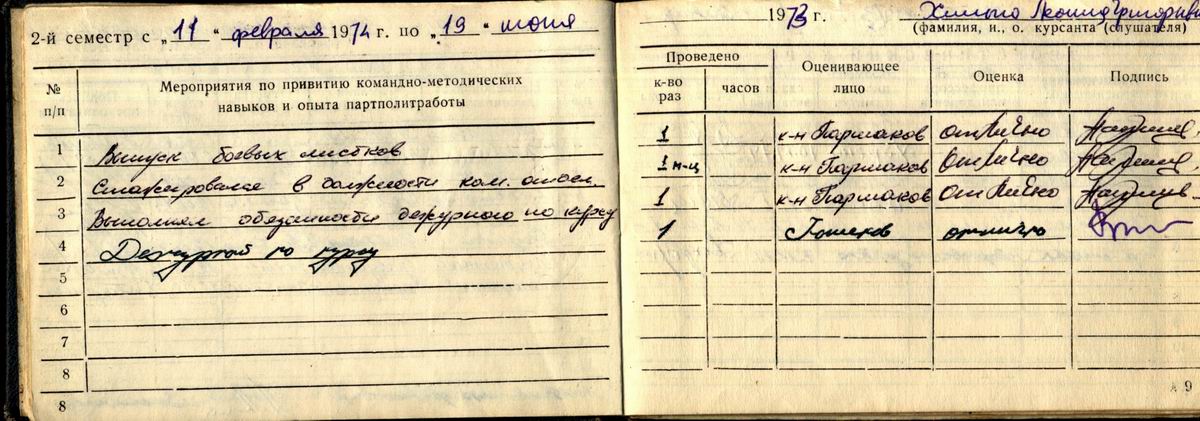 2-й семестр с „11“ февраля 1974 г. по „19“ июня 1973 г.
(фамилия, и., о. курсанта (слушателя)
№ п/п
Мероприятия по привитию командно-методических
навыков и опыта партполитработы
Проведено
к-во раз
часов
Оценивающее лицо
Оценка
Подпись
1 Выпуск боевых листков 1 к-н Паршаков отлично
2 Стажирование в должности ком. отдел. 1 м-ц к-н Паршаков Отлично
3 Выполнял обязанности дежурного по курсу 1 к-н Паршаков Отлично
4 Дежурной по курсу 1 отлично
5
6
7
8
8
9